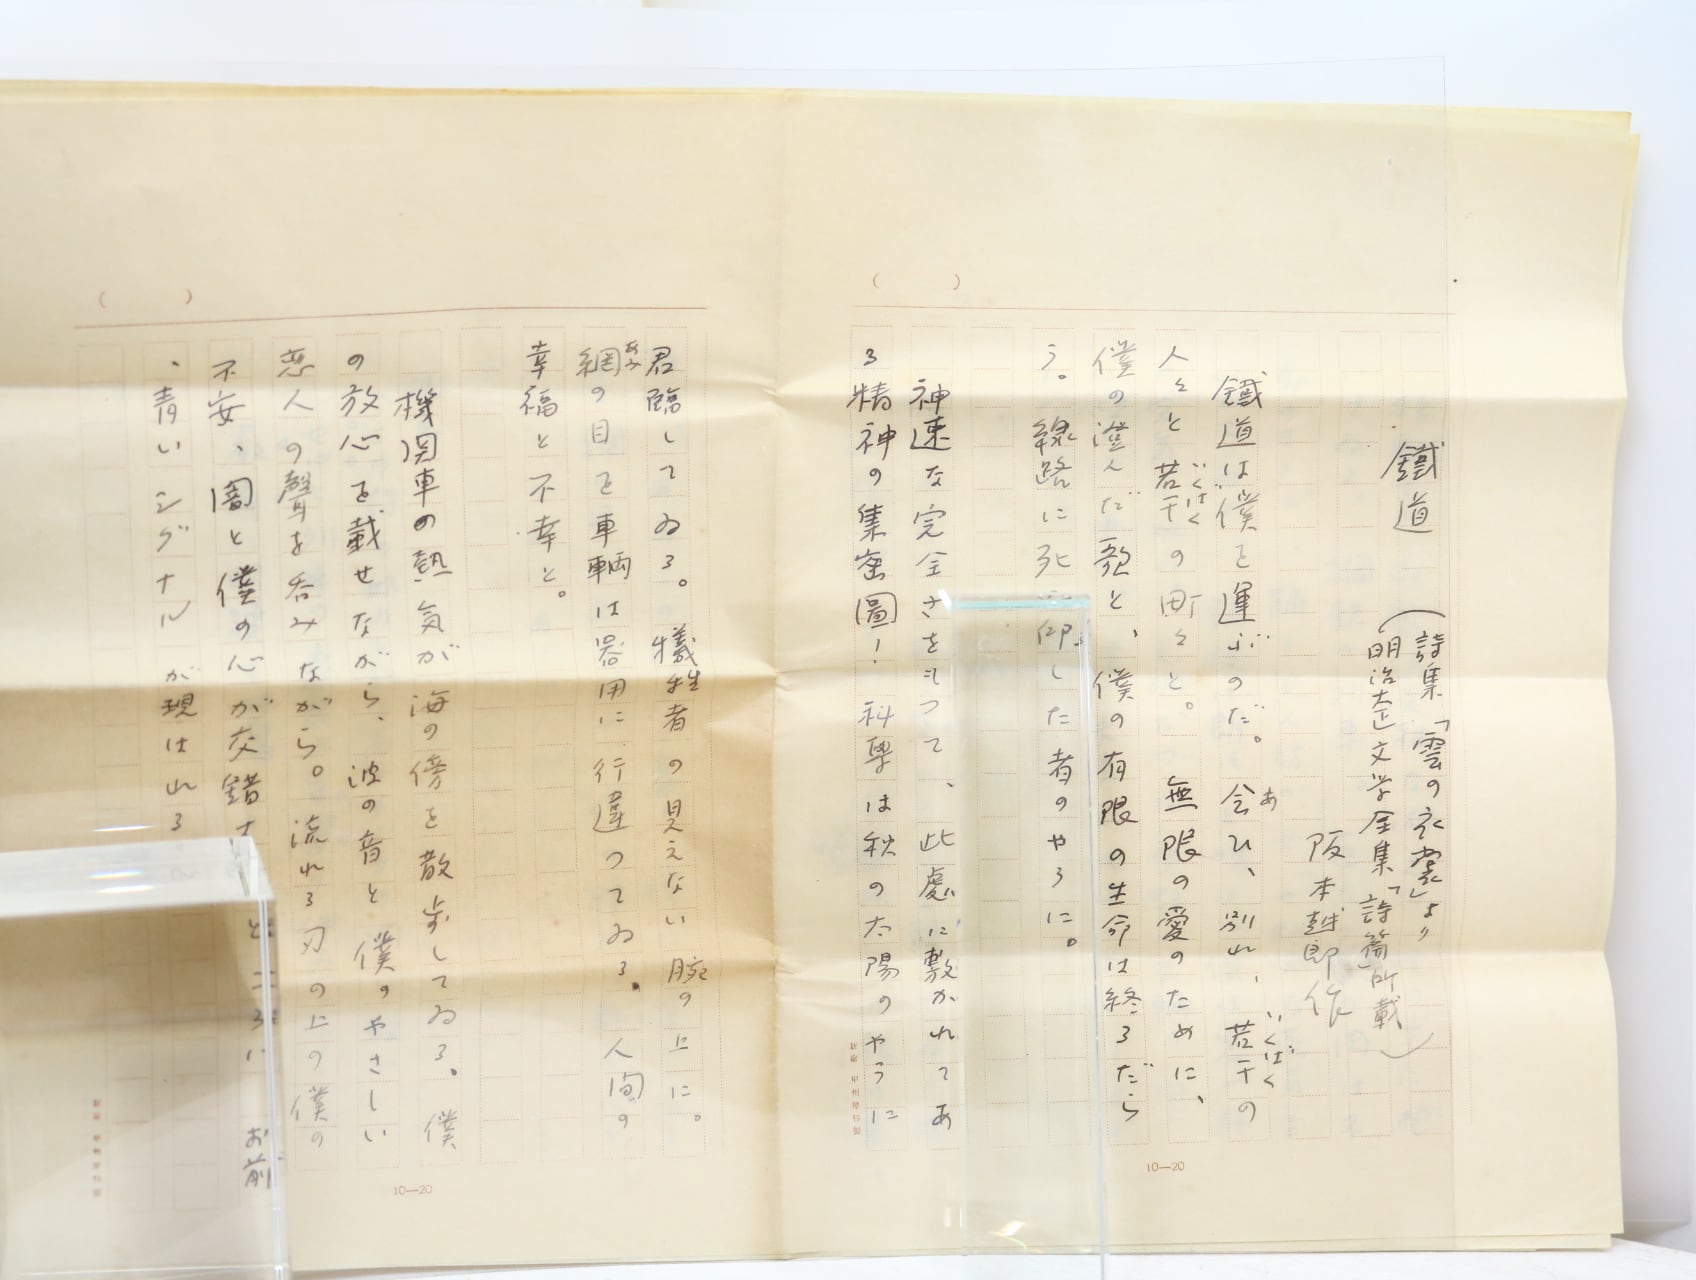 鐵道
(詩集「雲の衣裳」より
明治大正文学全集「詩篇」所載)
阪本越郎作
鐵道は僕を運ぶのだ。会ひ、別れ、若干の
あ
いくばく
人々と若干の町々と。無限の愛のために、
いくばく
僕の澄んだ歌と、僕の有限の生命は終るだら
う。線路に死 印した者のやうに。
神速な完全さをもつて、此處に敷かれてあ
る精神の集密圖!科學は秋の太陽のやうに
君臨してゐる。犠牲者の見えない腕の上に。
網の目を車輌は器用に行違つてゐる。人間の
あみ
幸福と不幸と。
機関車の熱気が海の傍を散歩してゐる。僕
の放心を載せながら、波の音と僕のやさしい
恋人の聲を呑みながら。流れる刃の上の僕の
不安、闇と僕の心が交錯す ところに お前
、青いシグナルが現はれる
10—20
10—20
新宿 甲州屋特製